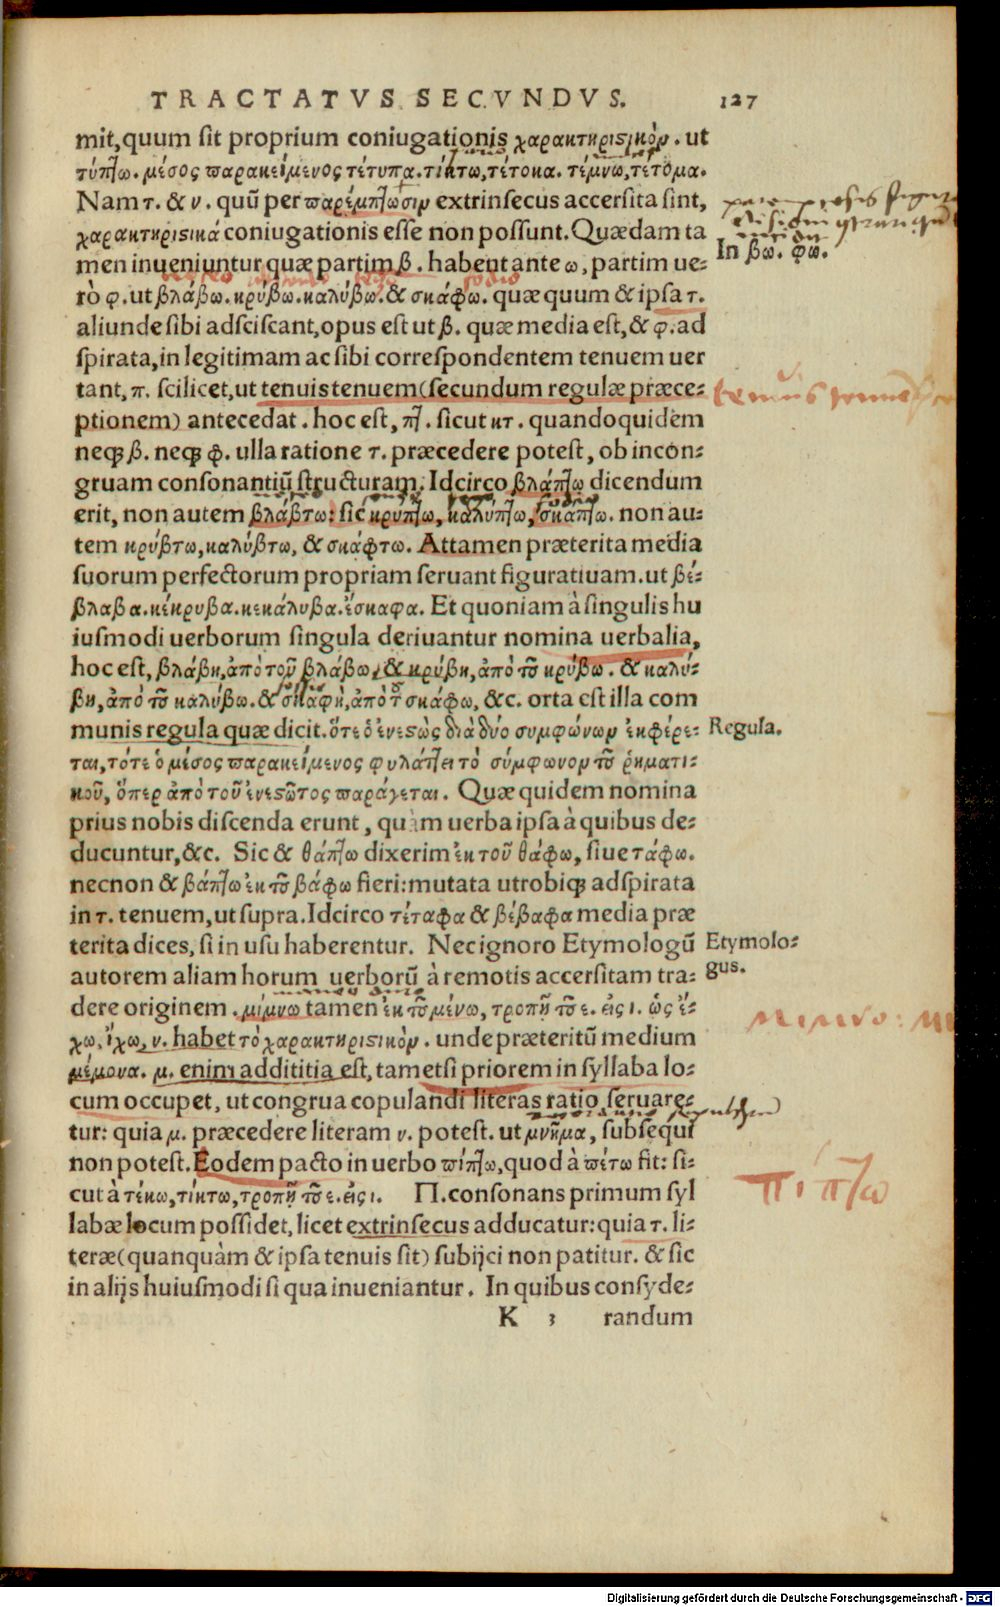 TRACTATVS SECVNDVS. 127
mit, quum sit proprium coniugationis χαρακτηριστικὸν. ut
τύπτω. μέσος παρακείμενος τέτυπα. τίκτω, τέτοκα. τέμνω, τέτομα.
Nam τ. & ν. quū per παρέμπτωσιν extrinsecus accersita sint,
χαρακτηριστικά coniugationis esse non possunt. Quædam ta
men inueniuntur quæ partim β. habent ante ω, partim ue-
In βω. φω.
rò φ. ut βλάβω. κρύβω. καλύβω. & σκάφω. quæ quum & ipsa τ.
aliunde sibi adsciscant, opus est ut β. quæ media est, & φ. ad
spirata, in legitimam ac sibi correspondentem tenuem uer
tant, π. scilicet, ut tenuis tenuem (secundum regulæ præce-
tenuis
ptionem) antecedat. hoc est, πτ. sicut κτ. quandoquidem
neq; β. neq; φ. ulla ratione τ. præcedere potest, ob incon-
gruam consonantiū structuram. Idcirco βλάπτω dicendum
erit, non autem βλάβτω: sic κρύπτω, καλύπτω, σκάπτω. non au-
tem κρύβτω, καλύβτω, & σκάφτω. Attamen præterita media
suorum perfectorum propriam seruant figuratiuam. ut βέ-
βλαβα. κέκρυβα. κεκάλυβα. ἔσκαφα. Et quoniam à singulis hu
iusmodi uerborum singula deriuantur nomina uerbalia,
hoc est, βλάβη, ἀπὸ τοῦ βλάβω, & κρύβη, ἀπὸ τοῦ κρύβω. & καλύ-
βη, ἀπὸ τοῦ καλύβω. & σκαφὴ, ἀπὸ τοῦ σκάφω, &c. orta est illa com
munis regula quæ dicit. ὅτε ὁ ἐνεστὼς διὰ δύο συμφώνων ἐκφέρε-
Regula.
ται, τότε ὁ μέσος παρακείμενος φυλάττει τὸ σύμφωνον τοῦ ῥηματι-
κοῦ, ὅπερ ἀπὸ τοῦ ἐνεστῶτος παράγεται. Quæ quidem nomina
prius nobis discenda erunt, quàm uerba ipsa à quibus de-
ducuntur, &c. Sic & θάπτω dixerim ἐκ τοῦ θάφω, siue τάφω.
necnon & βάπτω ἐκ τοῦ βάφω fieri: mutata utrobiq; adspirata
in τ. tenuem, ut supra. Idcirco τέταφα & βέβαφα media præ
terita dices, si in usu haberentur. Nec ignoro Etymologū
Etymolo-
gus.
autorem aliam horum uerborū à remotis accersitam tra-
dere originem. μίμνω tamen ἐκ τοῦ μένω, τροπῇ τοῦ ε. εἰς ι. ὡς ἔ-
χω, ἴχω, ν. habet τὸ χαρακτηριστικὸν. unde præteritū medium
μέμονα. μ. enim additia est, tametsi priorem in syllaba lo-
cum occupet, ut congrua copulandi literas ratio seruare-
tur: quia μ. præcedere literam ν. potest. ut μνῆμα, subsequi
non potest. Eodem pacto in uerbo πίπτω, quod à πέτω fit: si-
πίπτω
cut à τέκω, τίκτω, τροπῇ τοῦ ε. εἰς ι. Π. consonans primum syl
labæ locum possidet, licet extrinsecus adducatur: quia τ. li-
teræ (quanquàm & ipsa tenuis sit) subijci non patitur. & sic
in alijs huiusmodi si qua inueniantur. In quibus consyde-
K 3 randum
Digitalisierung gefördert durch die Deutsche Forschungsgemeinschaft - DFG